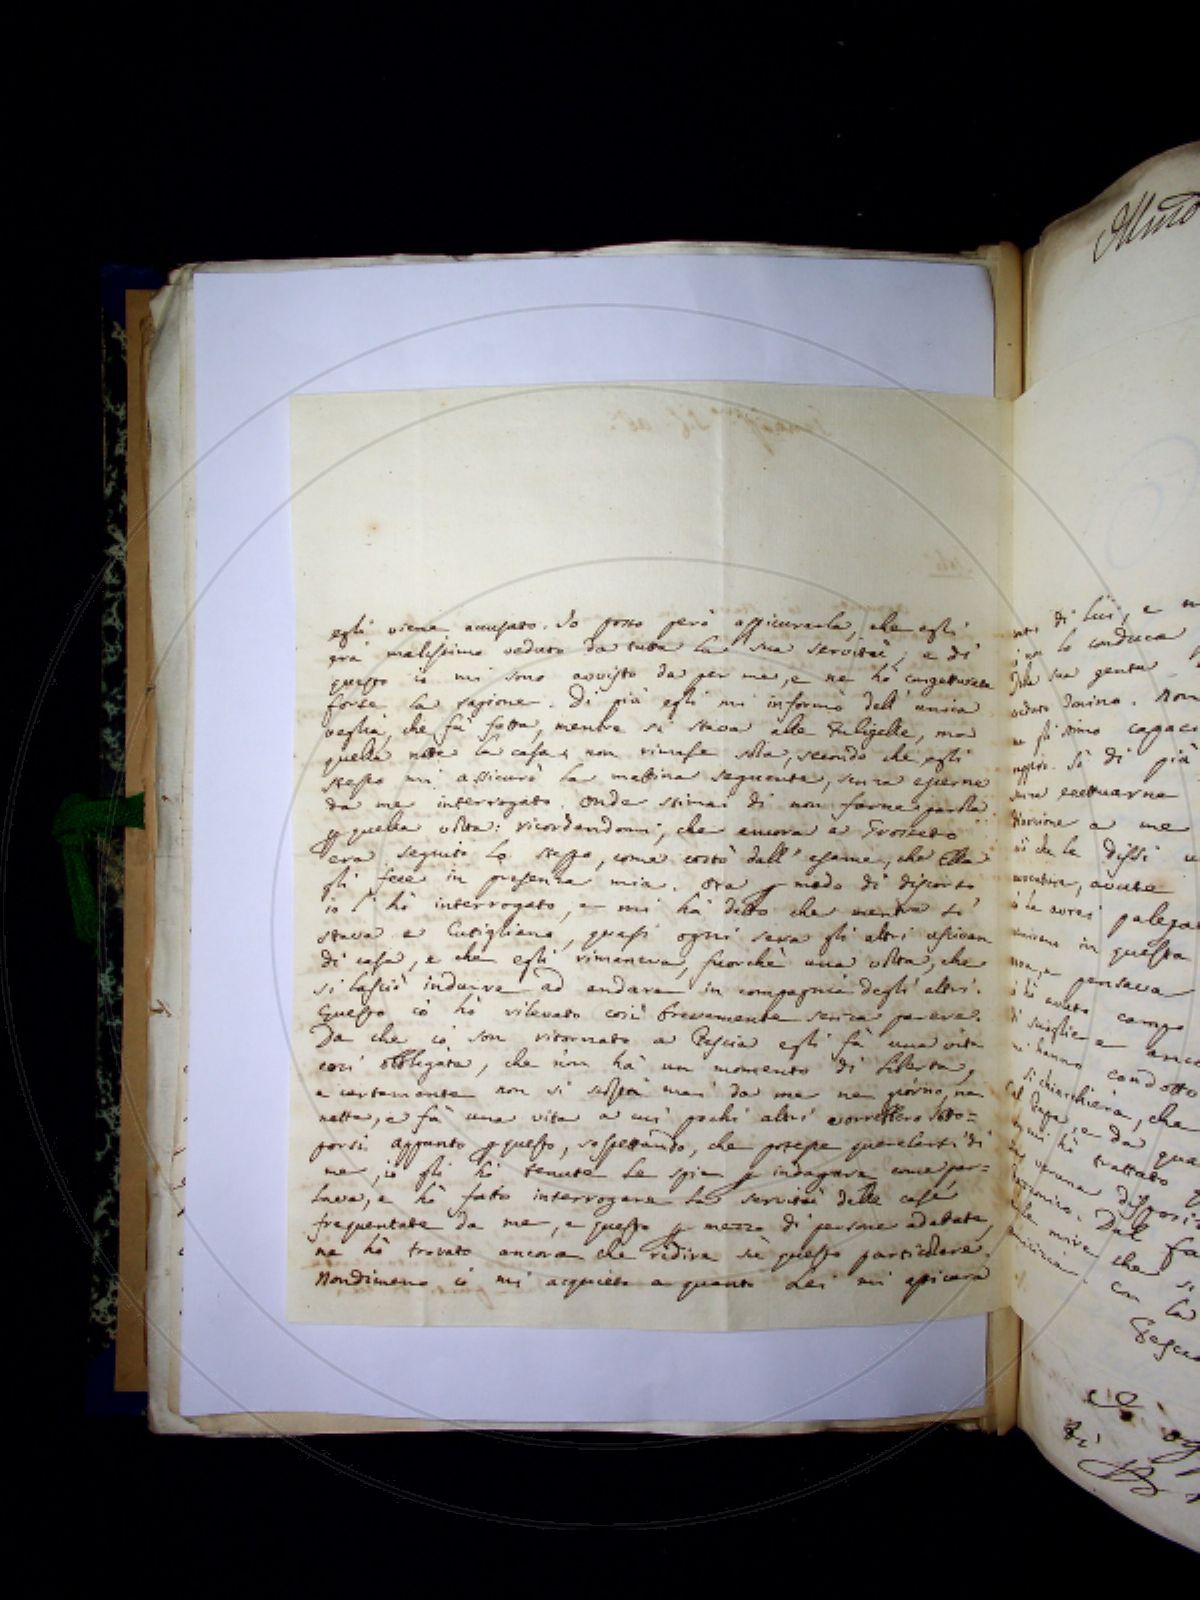 egli viene accusato. Io posso però assicurarla, che egli
era malissimo veduto da tutta la sua servitù, e di
questo io mi sono avvisto da per me, e ne hò congetturata
forse la ragione. Di più egli mi informò dell'unica
veglia, che fù fatta, mentre si stava alle Fuligelle, ma
quella notte la casa non rimase sola, secondo che egli
stesso mi assicurò la mattina seguente, senza esserne
da me interrogato. Onde stimai di non farne parola
p quella volta: ricordandomi, che ancora a Grosseto
era seguito lo stesso, come costò dall'esame, che Ella
gli fece in presenza mia. Ora p modo di discorso
io l'hò interrogato, e mi hà detto che mentre si
stava a Cutigliano, quasi ogni sera gli altri uscivan
di casa, e che egli rimaneva, fuorchè una volta, che
si lasciò indurre ad andare in compagnia degli altri.
Questo io hò rilevato così brevemente senza parere.
Da che io son ritornato a Pescia egli fà una vita
così obbligata, che non hà un momento di libertà,
e certamente non si scosta mai da me ne giorno, ne
notte, e fà una vita a cui pochi altri vorrebbero sotto=
porsi appunto p questo, sospettando, che potesse querelarsi di
me, io gli hò tenute le spie p indagare come par=
lava, e hò fatto interrogare la servitù delle case
frequentate da me, e questo p mezzo di persone adattate,
ne hò trovato ancora che ridire sù questo particolare.
Nondimeno io mi acquieto a quanto Lei mi
di Lui, e
lo conduca
sua gente
veduto
capaci
Sò di più
eccettuarne
a me
che le dissi
avute
in questa
pensava
hò avuto campo
anco
hanno condotto
che
e da
mi hò trattato
veruna
Dal
che si
con la